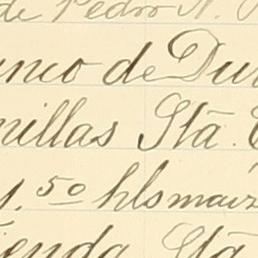 de Pedro N.
nco de Du
nillas Sta.
1. 50 hls maiz
ienda Sta